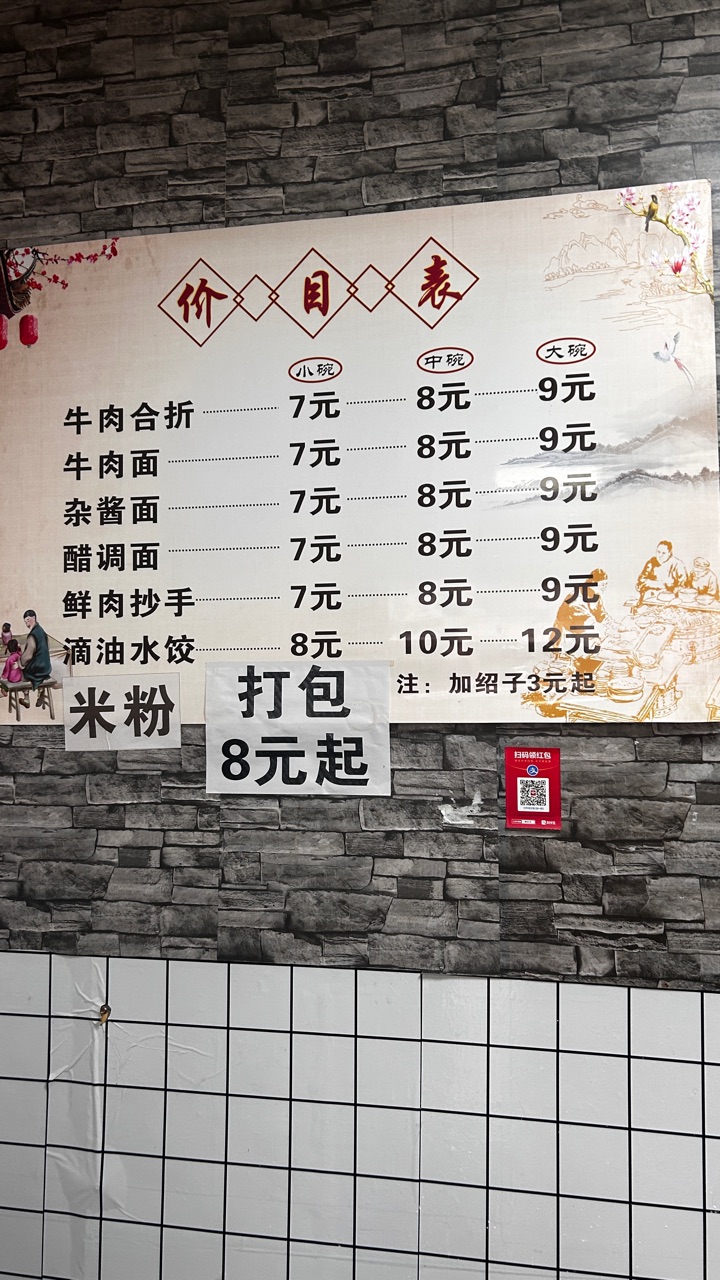 价目表
小碗 中碗 大碗
牛肉合折 7元 8元 9元
牛肉面 7元 8元 9元
杂酱面 7元 8元 9元
醋调面 7元 8元 9元
鲜肉抄手 7元 8元 9元
滴油水饺 8元 10元 12元
注：加绍子3元起
米粉
打包
8元起
扫码领红包